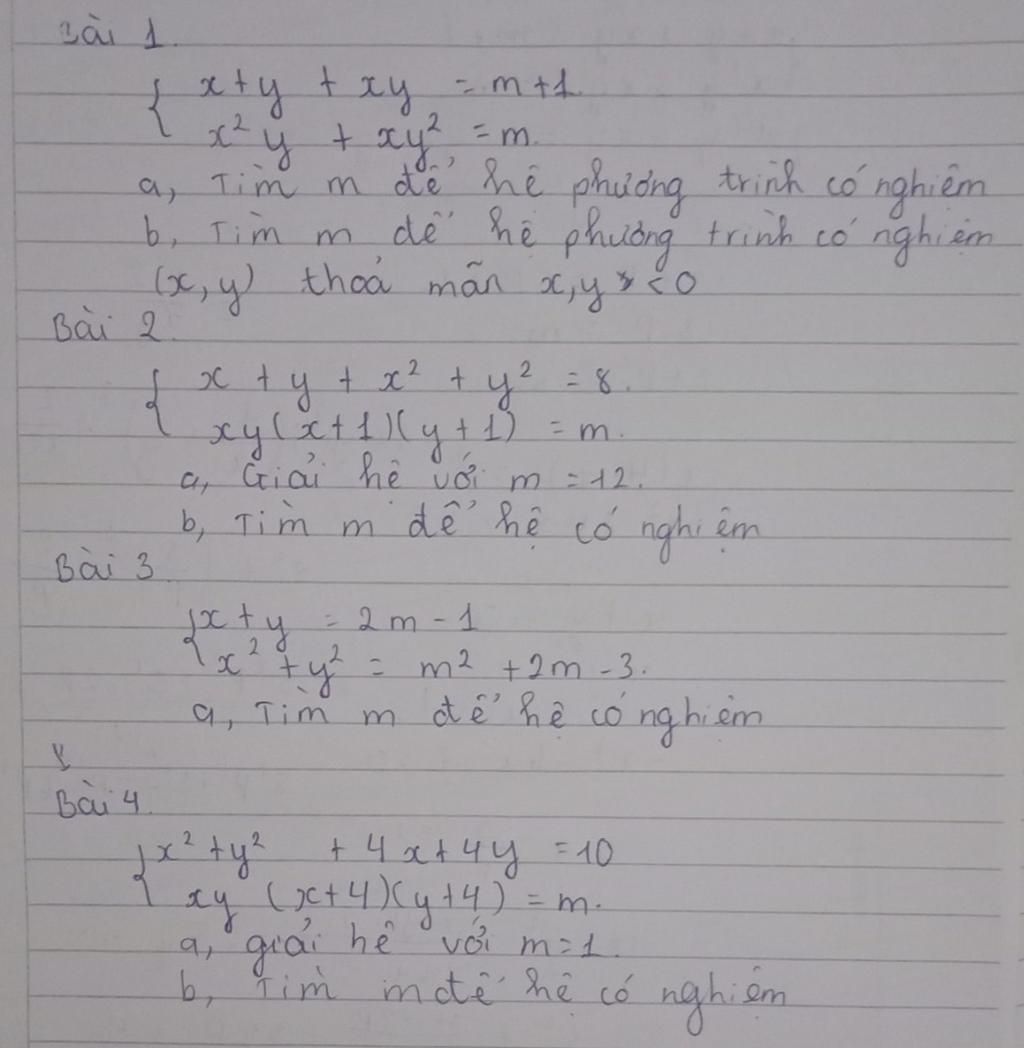 Bài 1.
{ x+y + xy = m+1.
x² y + xy² = m.
a, Tìm m để hệ phương trình có nghiệm
b, Tìm m để hệ phương trình có nghiệm
(x, y) thoả mãn x, y < 0
Bài 2.
{ x + y + x² + y² = 8.
xy(x+1)(y+1) = m.
a, Giải hệ với m = 12.
b, Tìm m để hệ có nghiệm
Bài 3
{ x + y = 2m - 1
x² + y² = m² + 2m - 3.
a, Tìm m để hệ có nghiệm
Bài 4.
{ x² + y² + 4x + 4y = 10
xy (x+4)(y+4) = m.
a, giải hệ với m = 1.
b, Tìm m để hệ có nghiệm